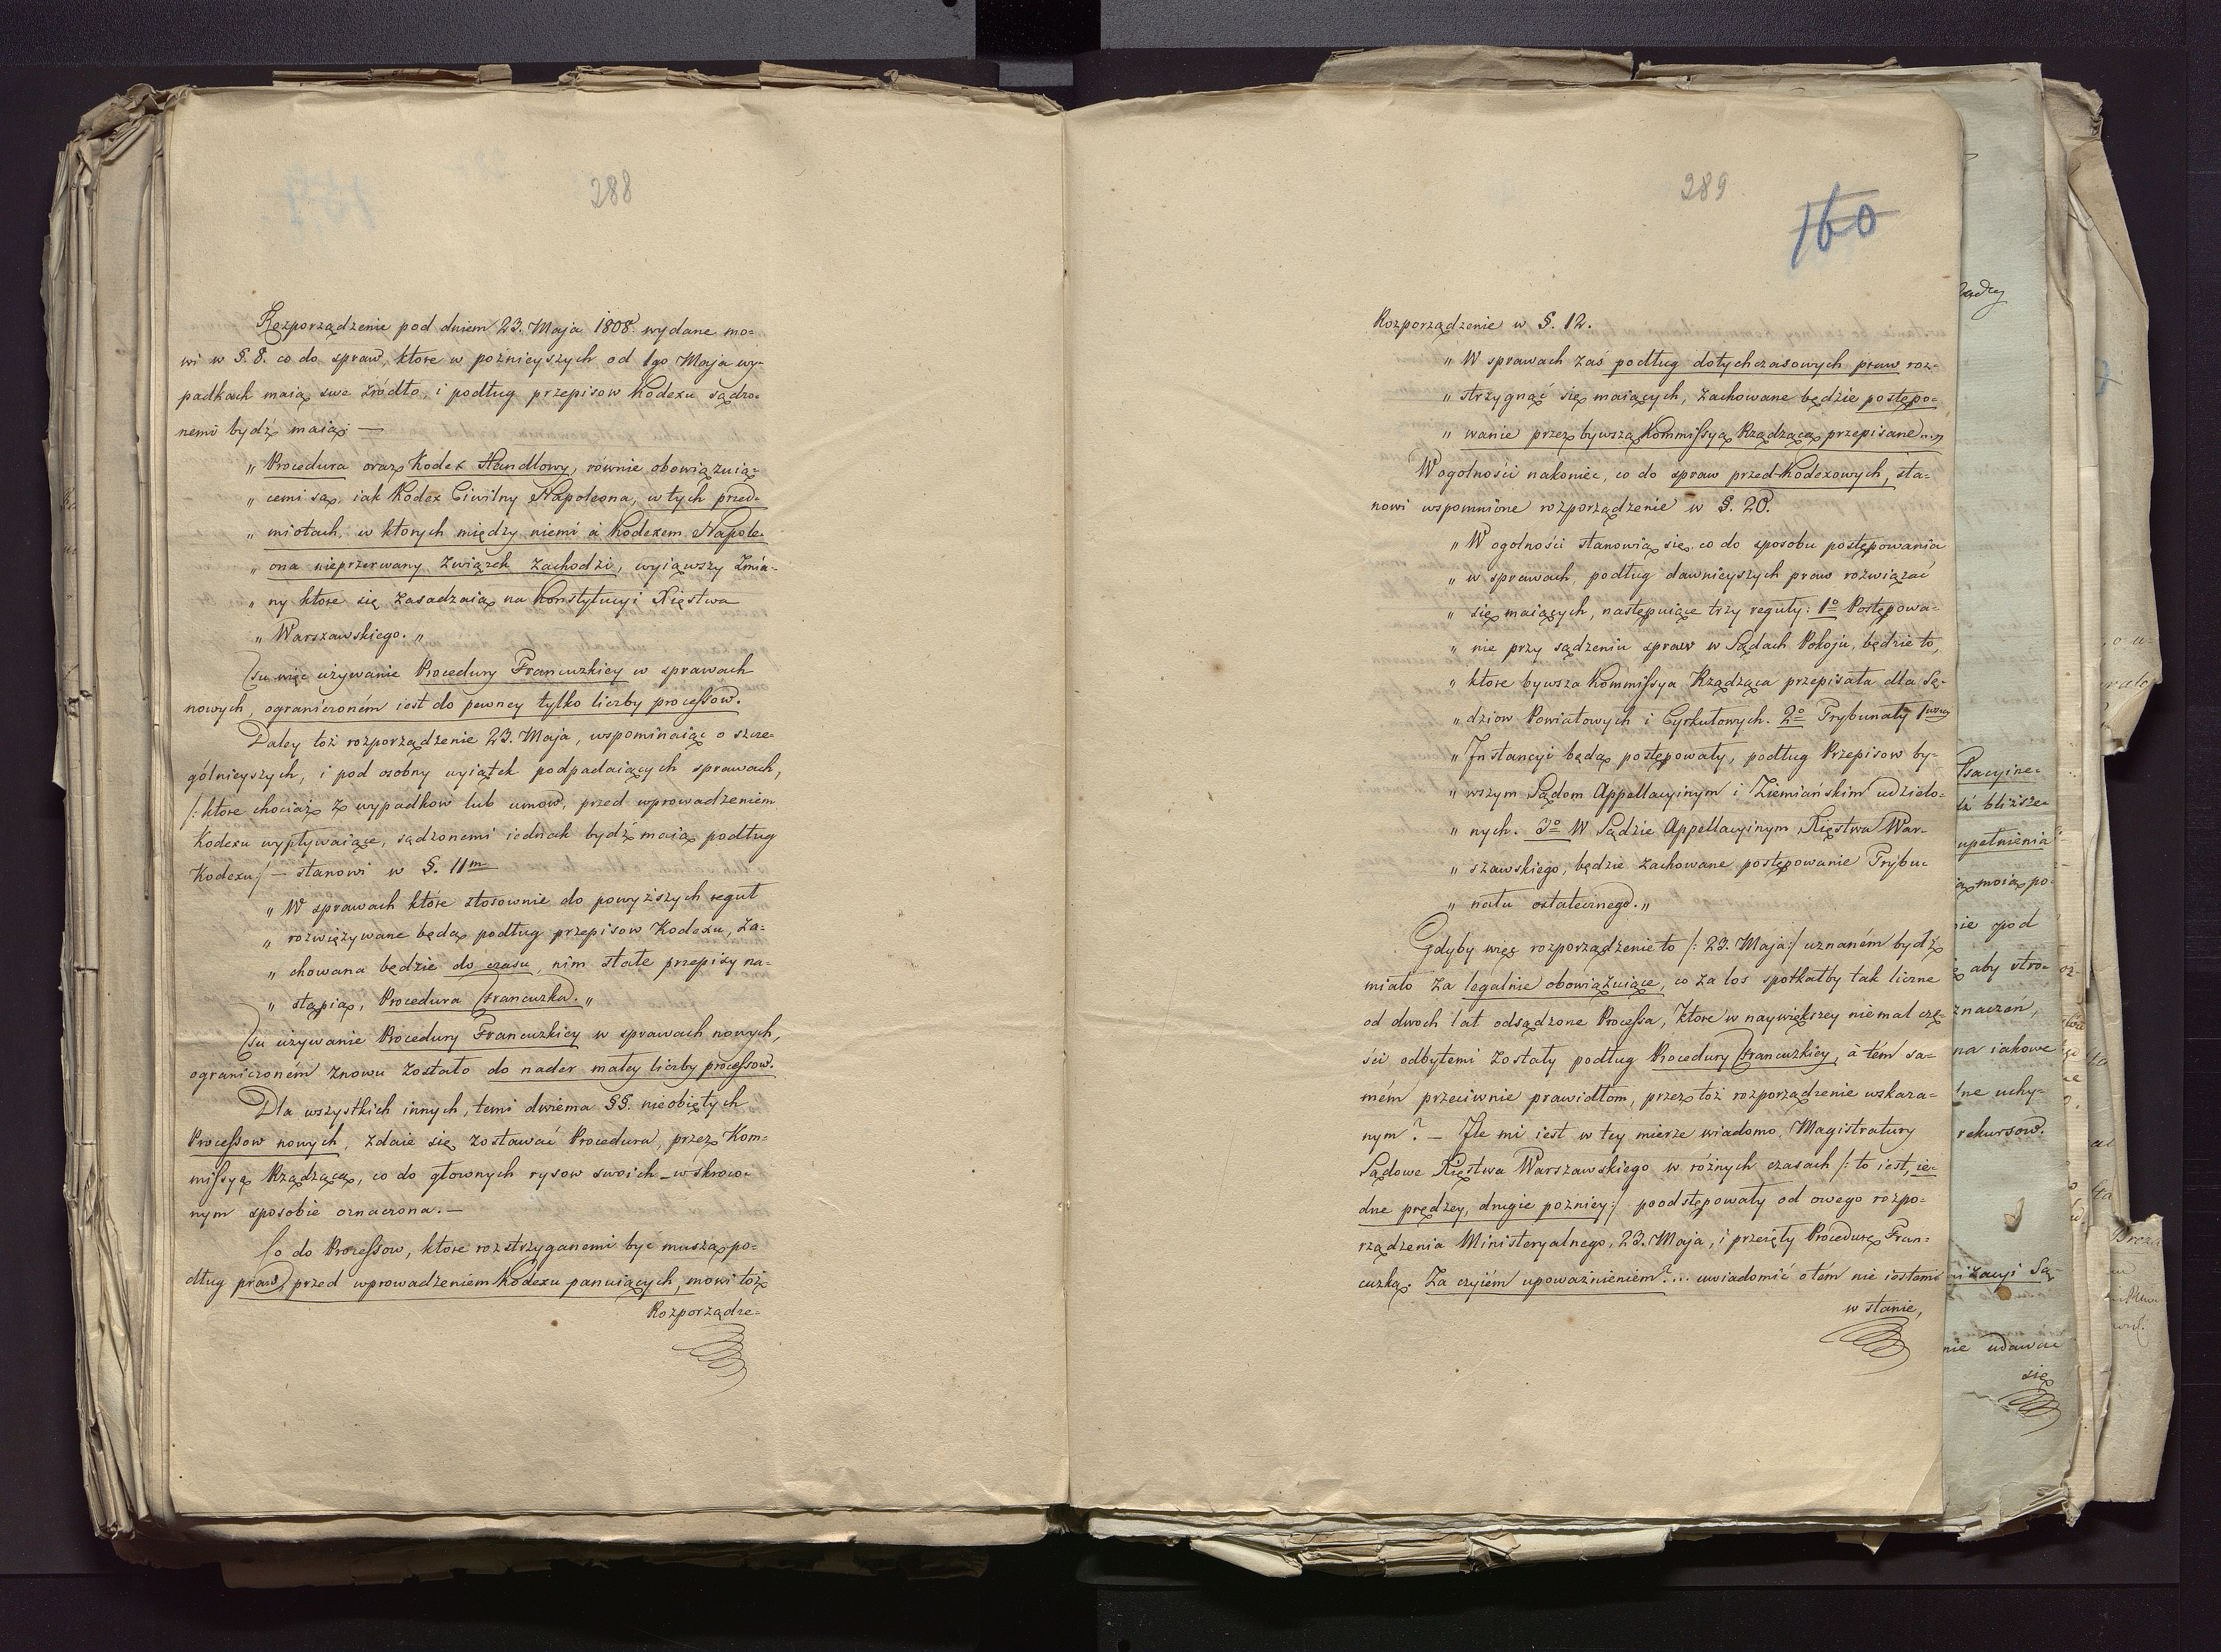 288
Rozporządzenie pod dniem 23. Maja 1808. wydane mo=
wi w §. 8. co do spraw, ktore w poźnieyszych od 1go Maja wy=
padkach maią swe źródło, i podług przepisow Kodexu sądzo=
nemi bydź maią: —
„ Procedura oraz Kodex Handlowy, równie obowiązuią=
„ cemi są, iak Kodex Ciwilny Napoleona, w tych przed=
„ miotach, w ktorych między niemi a Kodexem Napole=
„ ona nieprzerwany związek zachodzi, wyiąwszy zmia=
„ ny ktore się zasadzaią na Konstytucyi Xięstwa
„ Warszawskiego. „
Tu więc używanie Procedury Francuzkiey w sprawach
nowych, ograniczoném iest do pewney tylko liczby processów.
Daley toż rozporządzenie 23. Maja, wspominaiąc o szcze=
gólnieyszych, i pod osobny wyiątek podpadaiących sprawach,
/: ktore chociaż z wypadkow lub umow, przed wprowadzeniem
Kodexu wypływaiące, sądzonemi iednak bydź maią podług
Kodexu :/ — stanowi w §. 11m
„ W sprawach które stosownie do powyższych reguł
„ rozwiązywane będą podług przepisow Kodexu, za=
„ chowana będzie do czasu, nim stałe przepisy na=
„ stąpią, Procedura Francuzka. „
Tu używanie Procedury Francuzkiey w sprawach nowych,
ograniczoném znowu zostało do nader małey liczby processow.
Dla wszystkich innych, temi dwiema §§. nieobiętych
Processow nowych, zdaie się zostawać Procedura, przez Kom=
missyę Rządzącą, co do głownych rysow swoich w skroco=
nym sposobie oznaczona. —
Co do Processow, ktore rozstrzyganemi być muszą po=
dług praw, przed wprowadzeniem Kodexu panuiących, mowi toż
Rozporządze=
289
160
Rozporządzenie w §. 12.
„ W sprawach zaś podług dotychczasowych praw roz=
„ strzygnąć się maiących, zachowane będzie postępo=
„ wanie przez bywszą Kommissyą Rządzącą przepisane...„
W ogolności nakoniec, co do spraw przed-Kodexowych, sta=
nowi wspomnione rozporządzenie w §. 20.
„ W ogolności stanowią się, co do sposobu postępowania
„ w sprawach, podług dawnieyszych praw rozwiązać
„ się maiących, następuiące trzy reguły: 1o Postępowa=
„ nie przy sądzeniu spraw w Sądach Pokoju, będzie to,
„ ktore bywsza Kommissya Rządząca przepisała dla Sę=
„ dziow Powiatowych i Cyrkułowych. 2o Trybunały 1wszey
„ Instancyi będą postępowały, podług Przepisow by=
„ wszym Sądom Appellacyinym i Ziemiańskim udzielo=
„ nych. 3o W Sądzie Appellacyinym Xięstwa War=
„ szawskiego, będzie zachowane postępowanie Trybu=
„ nału ostatecznego. „
Gdyby więc rozporządzenie to /: 23. Maja :/ uznaném bydź
miało za legalnie obowiązuiące, co za los spotkałby tak liczne
od dwoch lat odsądzone Processa, ktore w naywiększey niemal czę=
ści odbytemi zostały podług Procedury Francuzkiey, a tém sa=
mém przeciwnie prawidłom, przez toż rozporządzenie wskaza=
nym? — Ile mi iest w tey mierze wiadomo, Magistratury
Sądowe Xięstwa Warszawskiego w różnych czasach /: to iest, ie=
dne prędzey, drugie pozniey :/ poodstępowały od owego rozpo=
rządzenia Ministeryalnego, 23. Maja, i przeięły Procedurę Fran=
cuzką. Za czyiém upoważnieniem?... uwiadomić o tém nie iestem
w stanie,
upełnienia
aby stro=
znaczeń,
na iakowe
ne uchy=
rekursow.
nie udawać
się